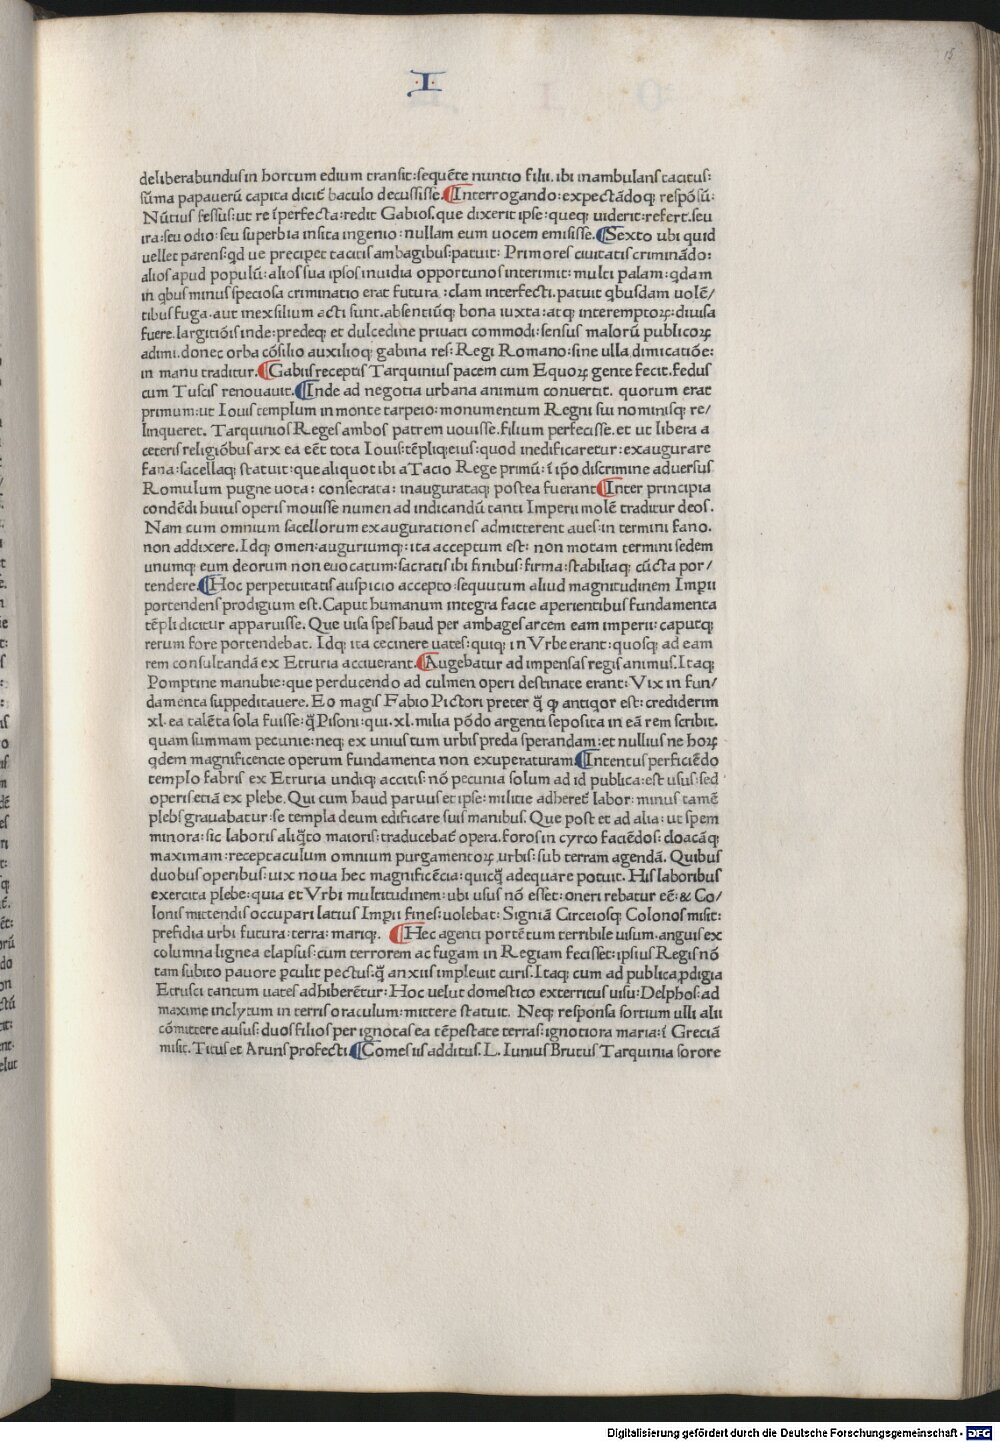 15
·I·
deliberabundus in hortum edium transit: sequēte nuncio filii. ibi inambulans tacitus:
sūma papauerū capita dicit̄ baculo decussisse. ¶Interrogando: expectādoqꝫ respōsū:
Nūtius fessus: ut re īperfecta: redit Gabios. que dixerit ipse: queqꝫ uiderit: refert. seu
ira: seu odio: seu superbia insita ingenio: nullam eum uocem emisisse. ¶Sexto ubi quid
uellet parens: qd ue preciperet tacitis ambagibus: patuit: Primores ciuitatis criminādo:
alios apud populū: alios sua ipsos inuidia opportunos interimit: multi palam: qdam
in qbus minus speciosa criminatio erat futura: clam interfecti. patuit qbusdam uolē/
tibus fuga. aut in exsilium acti sunt. absentiūqꝫ bona iuxta: atqꝫ interemptoꝝ: diuisa
fuere. largitiōis inde: predeqꝫ et dulcedine priuati commodi: sensus malorū publicoꝝ
adimi. donec orba cōsilio auxilioqꝫ gabina res: Regi Romano: sine ulla dimicatiōe:
in manu traditur. ¶Gabiis receptis Tarquinius pacem cum Equoꝝ gente fecit. fedus
cum Tuscis renouauit. ¶Inde ad negotia urbana animum conuertit. quorum erat
primum: ut Iouis templum in monte tarpeio: monumentum Regni sui nominisqꝫ re/
linqueret. Tarquinios Reges ambos patrem uouisse. filium perfecisse. et ut libera a
ceteris religiōbus arx ea eēt tota Iouis: tēpliqꝫ eius: quod inedificaretur: exaugurare
fana: sacellaqꝫ statuit: que aliquot ibi a Tacio Rege primū: ī ip̄o discrimine aduersus
Romulum pugne uota: consecrata: inaugurataqꝫ postea fuerant ¶Inter principia
condēdi huius operis mouisse numen ad indicandū tanti Imperii molē traditur deos.
Nam cum omnium sacellorum exaugurationes admitterent aues: in termini fano.
non addixere. Idqꝫ omen: auguriumqꝫ: ita acceptum est: non motam termini sedem
unumqꝫ eum deorum non euocatum: sacratis ibi finibus: firma: stabiliaqꝫ cūcta por/
tendere. ¶Hoc perpetuitatis auspicio accepto: sequutum aliud magnitudinem Imp̄ii
portendens prodigium est. Caput humanum integra facie aperientibus fundamenta
tēpli dicitur apparuisse. Que uisa spes haud per ambages arcem eam imperii: caputqꝫ
rerum fore portendebat. Idqꝫ ita cecinere uates: quiqꝫ in Vrbe erant: quosqꝫ ad eam
rem consultandā ex Etruria acciuerant. ¶Augebatur ad impensas regis animus. Itaqꝫ
Pomptine manubie: que perducendo ad culmen operi destinate erant: Vix in fun/
damenta suppeditauere. Eo magis Fabio Pictori preter q̄ ꝙ antiqor est: crediderim
xl. ea talēta sola fuisse: q̄ Pisoni: qui. xl. milia pōdo argenti seposita in eā rem scribit.
quam summam pecunie: neqꝫ ex unius tum urbis preda sperandam: et nullius ne hoꝝ
qdem magnificencie operum fundamenta non exuperaturam ¶Intentus perficiēdo
templo fabris ex Etruria undiqꝫ accitis: nō pecunia solum ad id publica: est usus: sed
operis etiā ex plebe. Qui cum haud paruus et ipse: militie adheret̄ labor: minus tamē
plebs grauabatur: se templa deum edificare suis manibus. Que post et ad alia: ut spem
minora: sic laboris aliq̄to maioris: traducebat̄ opera. foros in cyrco faciēdos: cloacāqꝫ
maximam: receptaculum omnium purgamentoꝝ urbis: sub terram agendā. Quibus
duobus operibus: uix noua hec magnificēcia: quicq̄ adequare potuit. His laboribus
exercita plebe: quia et Vrbi multitudinem: ubi usus nō esset: oneri rebatur eē: & Co/
lonis mittendis occupari latius Imp̄ii fines: uolebat: Signiā Circeiosqꝫ Colonos misit:
presidia urbi futura: terra: mariqꝫ. ¶Hec agenti portētum terribile uisum. anguis ex
columna lignea elapsus: cum terrorem ac fugam in Regiam fecisset: ipsius Regis nō
tam subito pauore ꝑculit pectus: q̄ anxiis impleuit curis. Itaqꝫ cum ad publica ꝓdigia
Etrusci tantum uates adhiberētur: Hoc uelut domestico exterritus uisu: Delphos: ad
maxime inclytum in terris oraculum: mittere statuit. Neqꝫ responsa sortium ulli alii
cōmittere ausus: duos filios per ignotas ea tēpestate terras: ignotiora maria: ī Greciā
misit. Titus et Aruns profecti ¶Comes iis additus. L. Iunius Brutus Tarquinia sorore
Digitalisierung gefördert durch die Deutsche Forschungsgemeinschaft - DFG